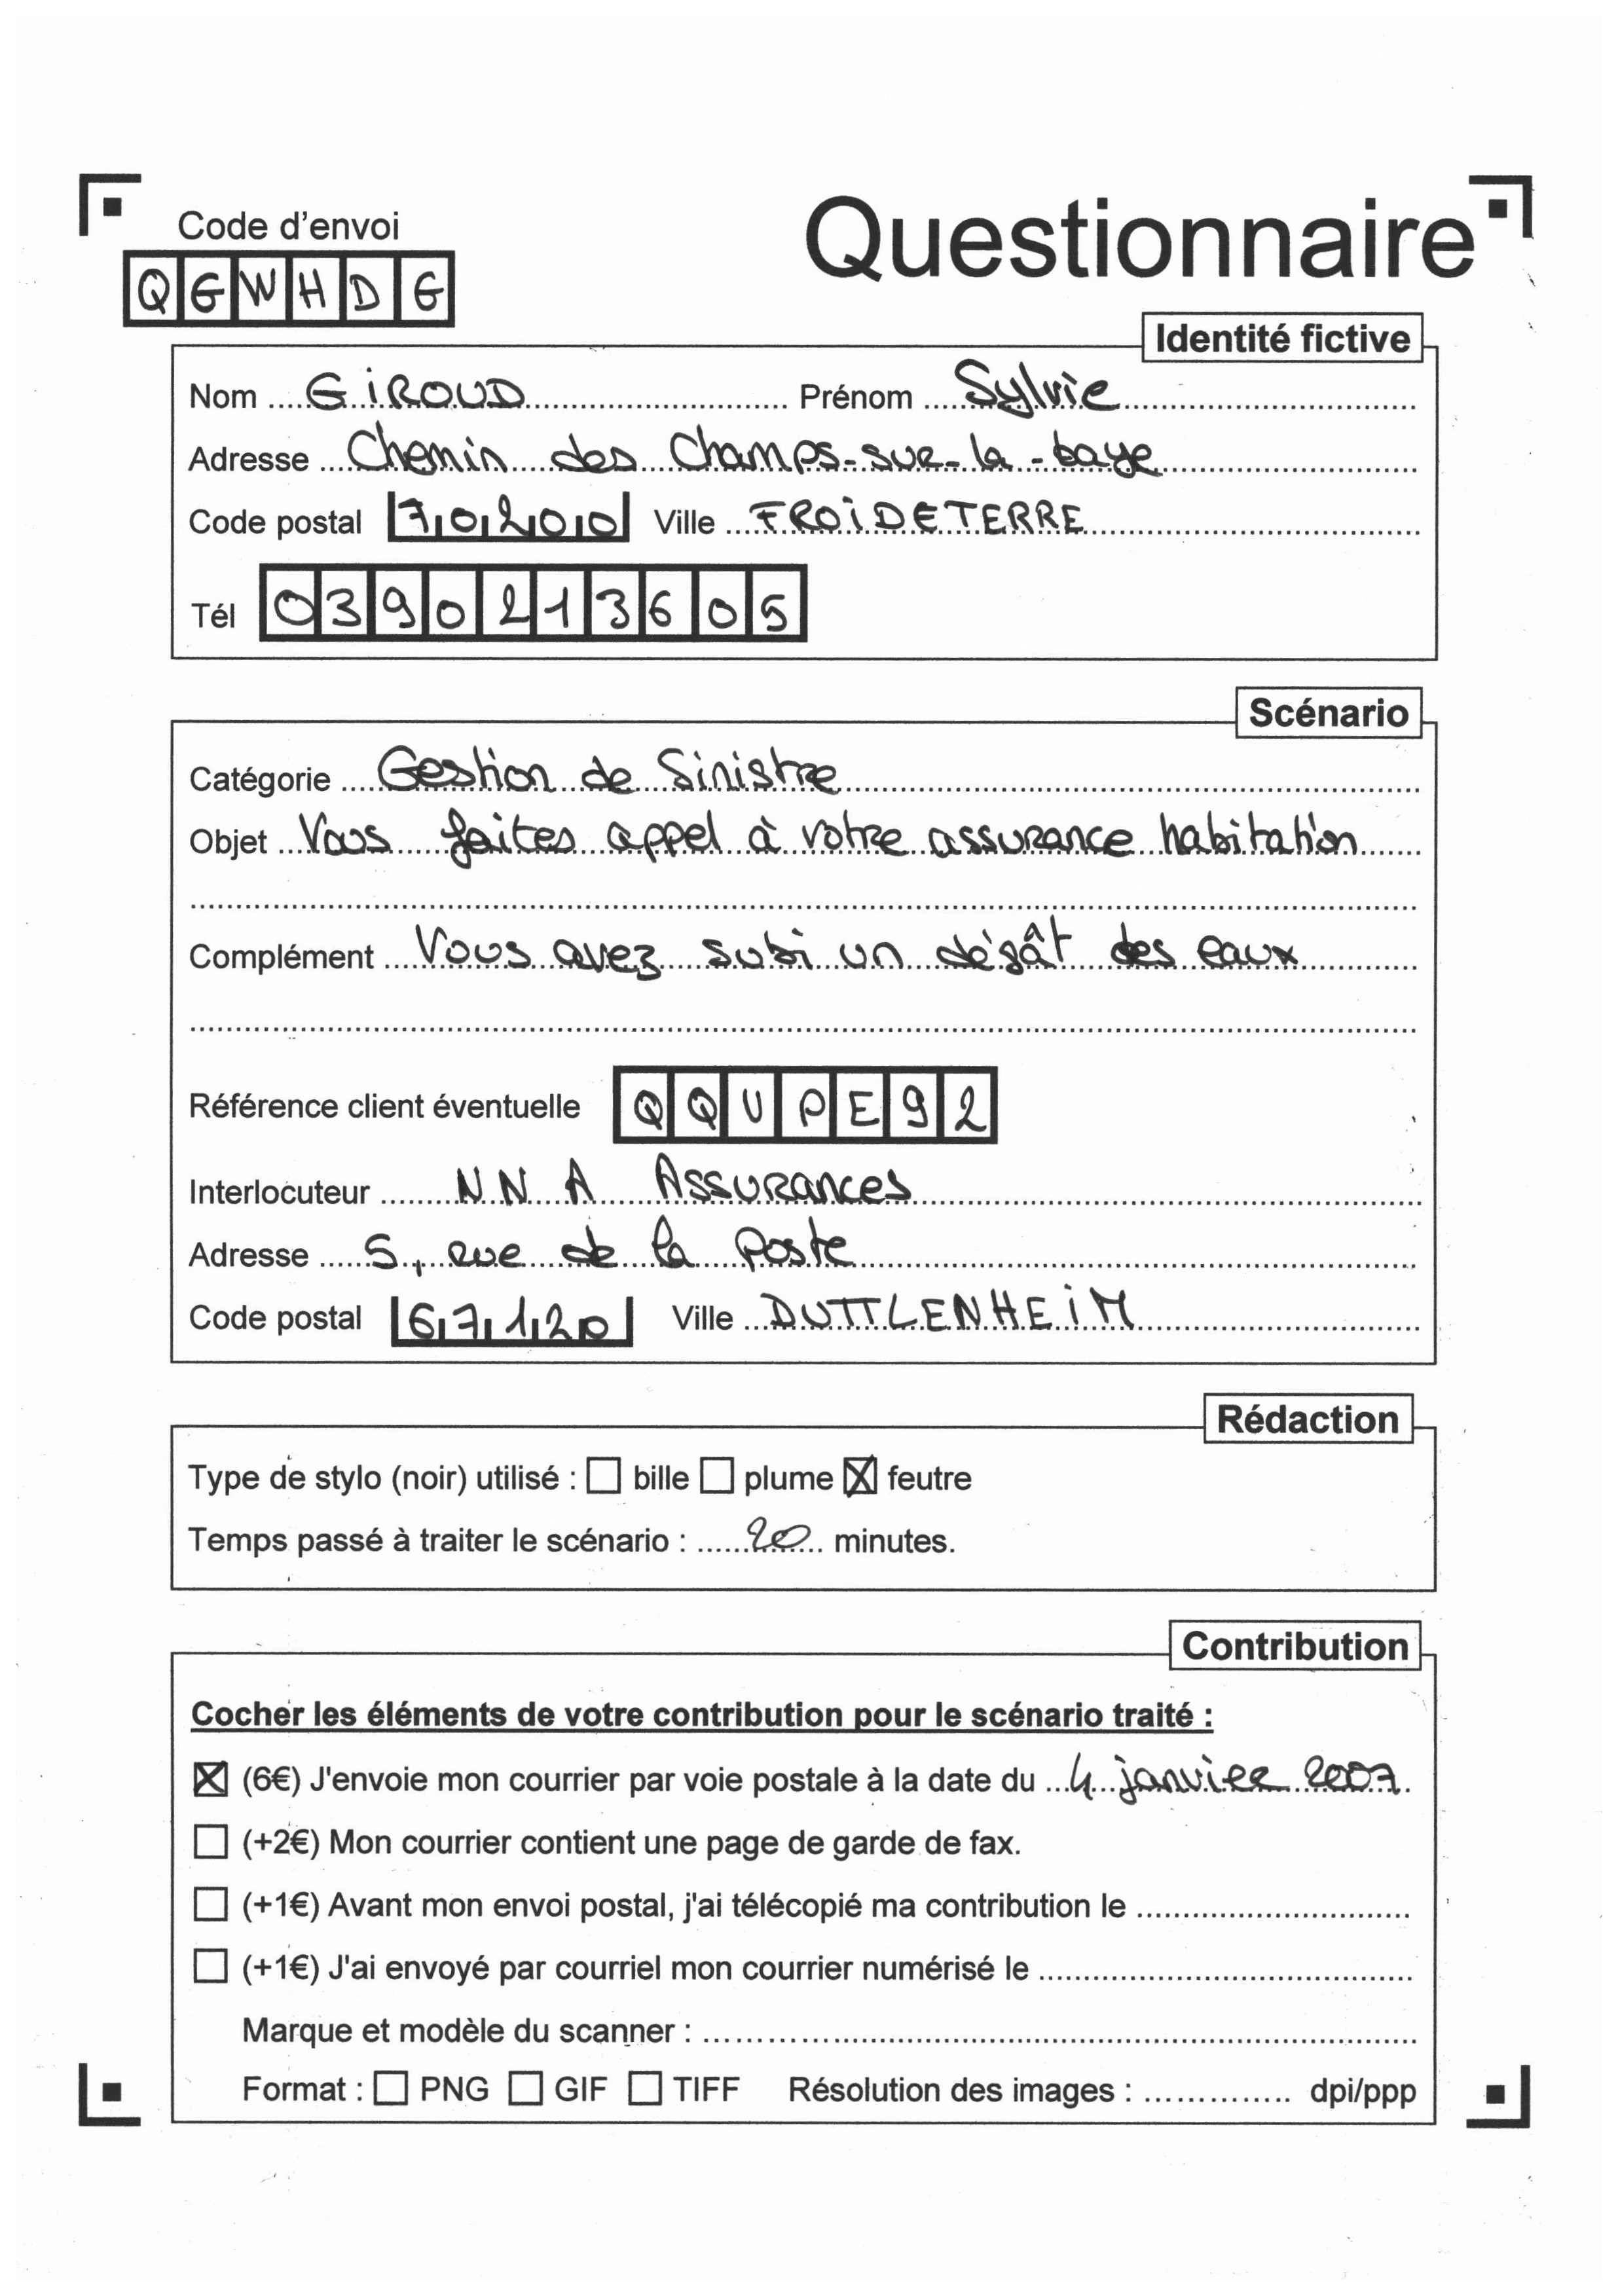 Code d'envoi
Questionnaire
QGWHDG
Identité fictive
Nom GIROUD Prénom Sylvie
Adresse Chemin des Champs-sur-la-baye
Code postal 70200 Ville FROIDETERRE
Tél 0390213605
Scénario
Catégorie Gestion de Sinistre
Objet Vous faites appel à votre assurance habitation
Complément Vous avez subi un dégât des eaux
Référence client éventuelle QQUPE92
Interlocuteur NNA Assurances
Adresse 5, rue de la Poste
Code postal 67120 Ville DUTTLENHEIM
Rédaction
Type de stylo (noir) utilisé : ☐ bille ☐ plume ☒ feutre
Temps passé à traiter le scénario : 20 minutes.
Contribution
Cocher les éléments de votre contribution pour le scénario traité :
☒ (6€) J'envoie mon courrier par voie postale à la date du 4 janvier 2007.
☐ (+2€) Mon courrier contient une page de garde de fax.
☐ (+1€) Avant mon envoi postal, j'ai télécopié ma contribution le
☐ (+1€) J'ai envoyé par courriel mon courrier numérisé le
Marque et modèle du scanner :
Format : ☐ PNG ☐ GIF ☐ TIFF Résolution des images : dpi/ppp